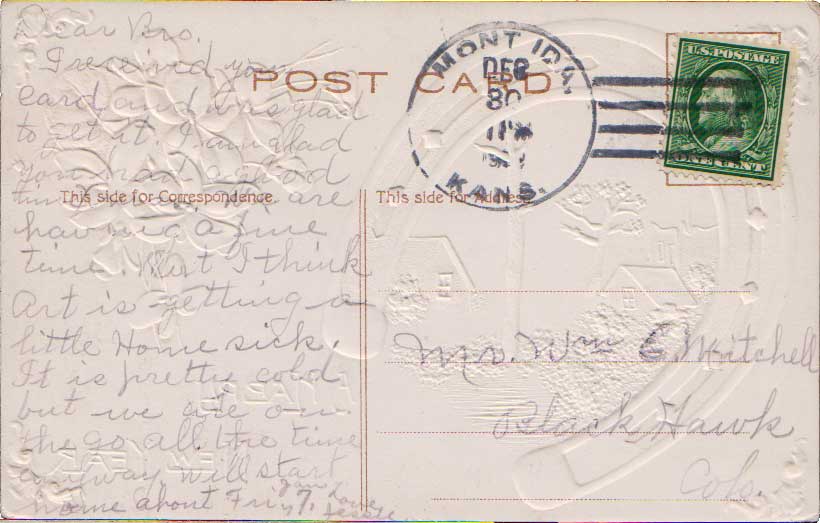 Dear Bro.
I received your
card and was glad
to get it. I am glad
you had a good
time
are
having a fine
time. But I think
Art is getting a
little Home sick.
It is pretty cold
but we are on
the go all the time
anyway will start
home about Fri 7.
POST CARD
This side for Correspondence.
This side for Address.
MONT IDA,
DEC
30
KANS.
U.S. POSTAGE
ONE CENT
Mr. Wm C. Mitchell
Black Hawk
Colo.